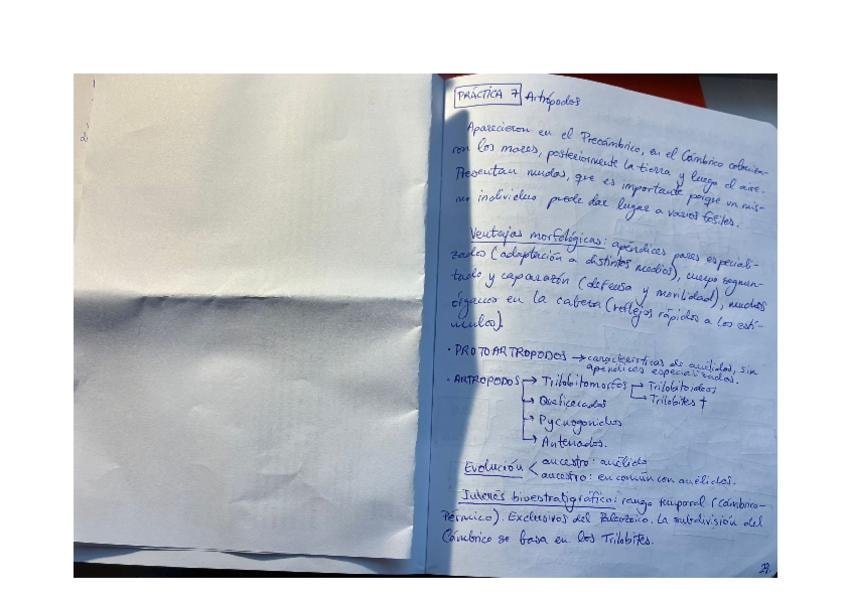 PRÁCTICA 7 Artrópodos
Aparecieron en el Precámbrico, en el Cámbrico coloniza-
ron los mares, posteriormente la tierra y luego el aire.
Presentan mudas, que es importante porque un mis-
mo individuo puede dar lugar a varios fósiles.
Ventajas morfológicas: apéndices pares especiali-
zados (adaptación a distintos medios), cuerpo segmen-
tado y caparazón (defensa y movilidad), muchos
órganos en la cabeza (reflejos rápidos a los estí-
mulos).
· PROTOARTROPODOS → características de anélidos, sin
apéndices especializados.
· ARTROPODOS → Trilobitomorfos → Trilobitoideos
→ Trilobites †
→ Quelicerados
→ Pycnogonidos
→ Antenados.
Evolución < ancestro: anélido
ancestro: en común con anélidos.
Interés bioestratigráfico: rango temporal (Cámbrico-
Pérmico). Exclusivos del Paleozoico. La subdivisión del
Cámbrico se basa en los Trilobites.